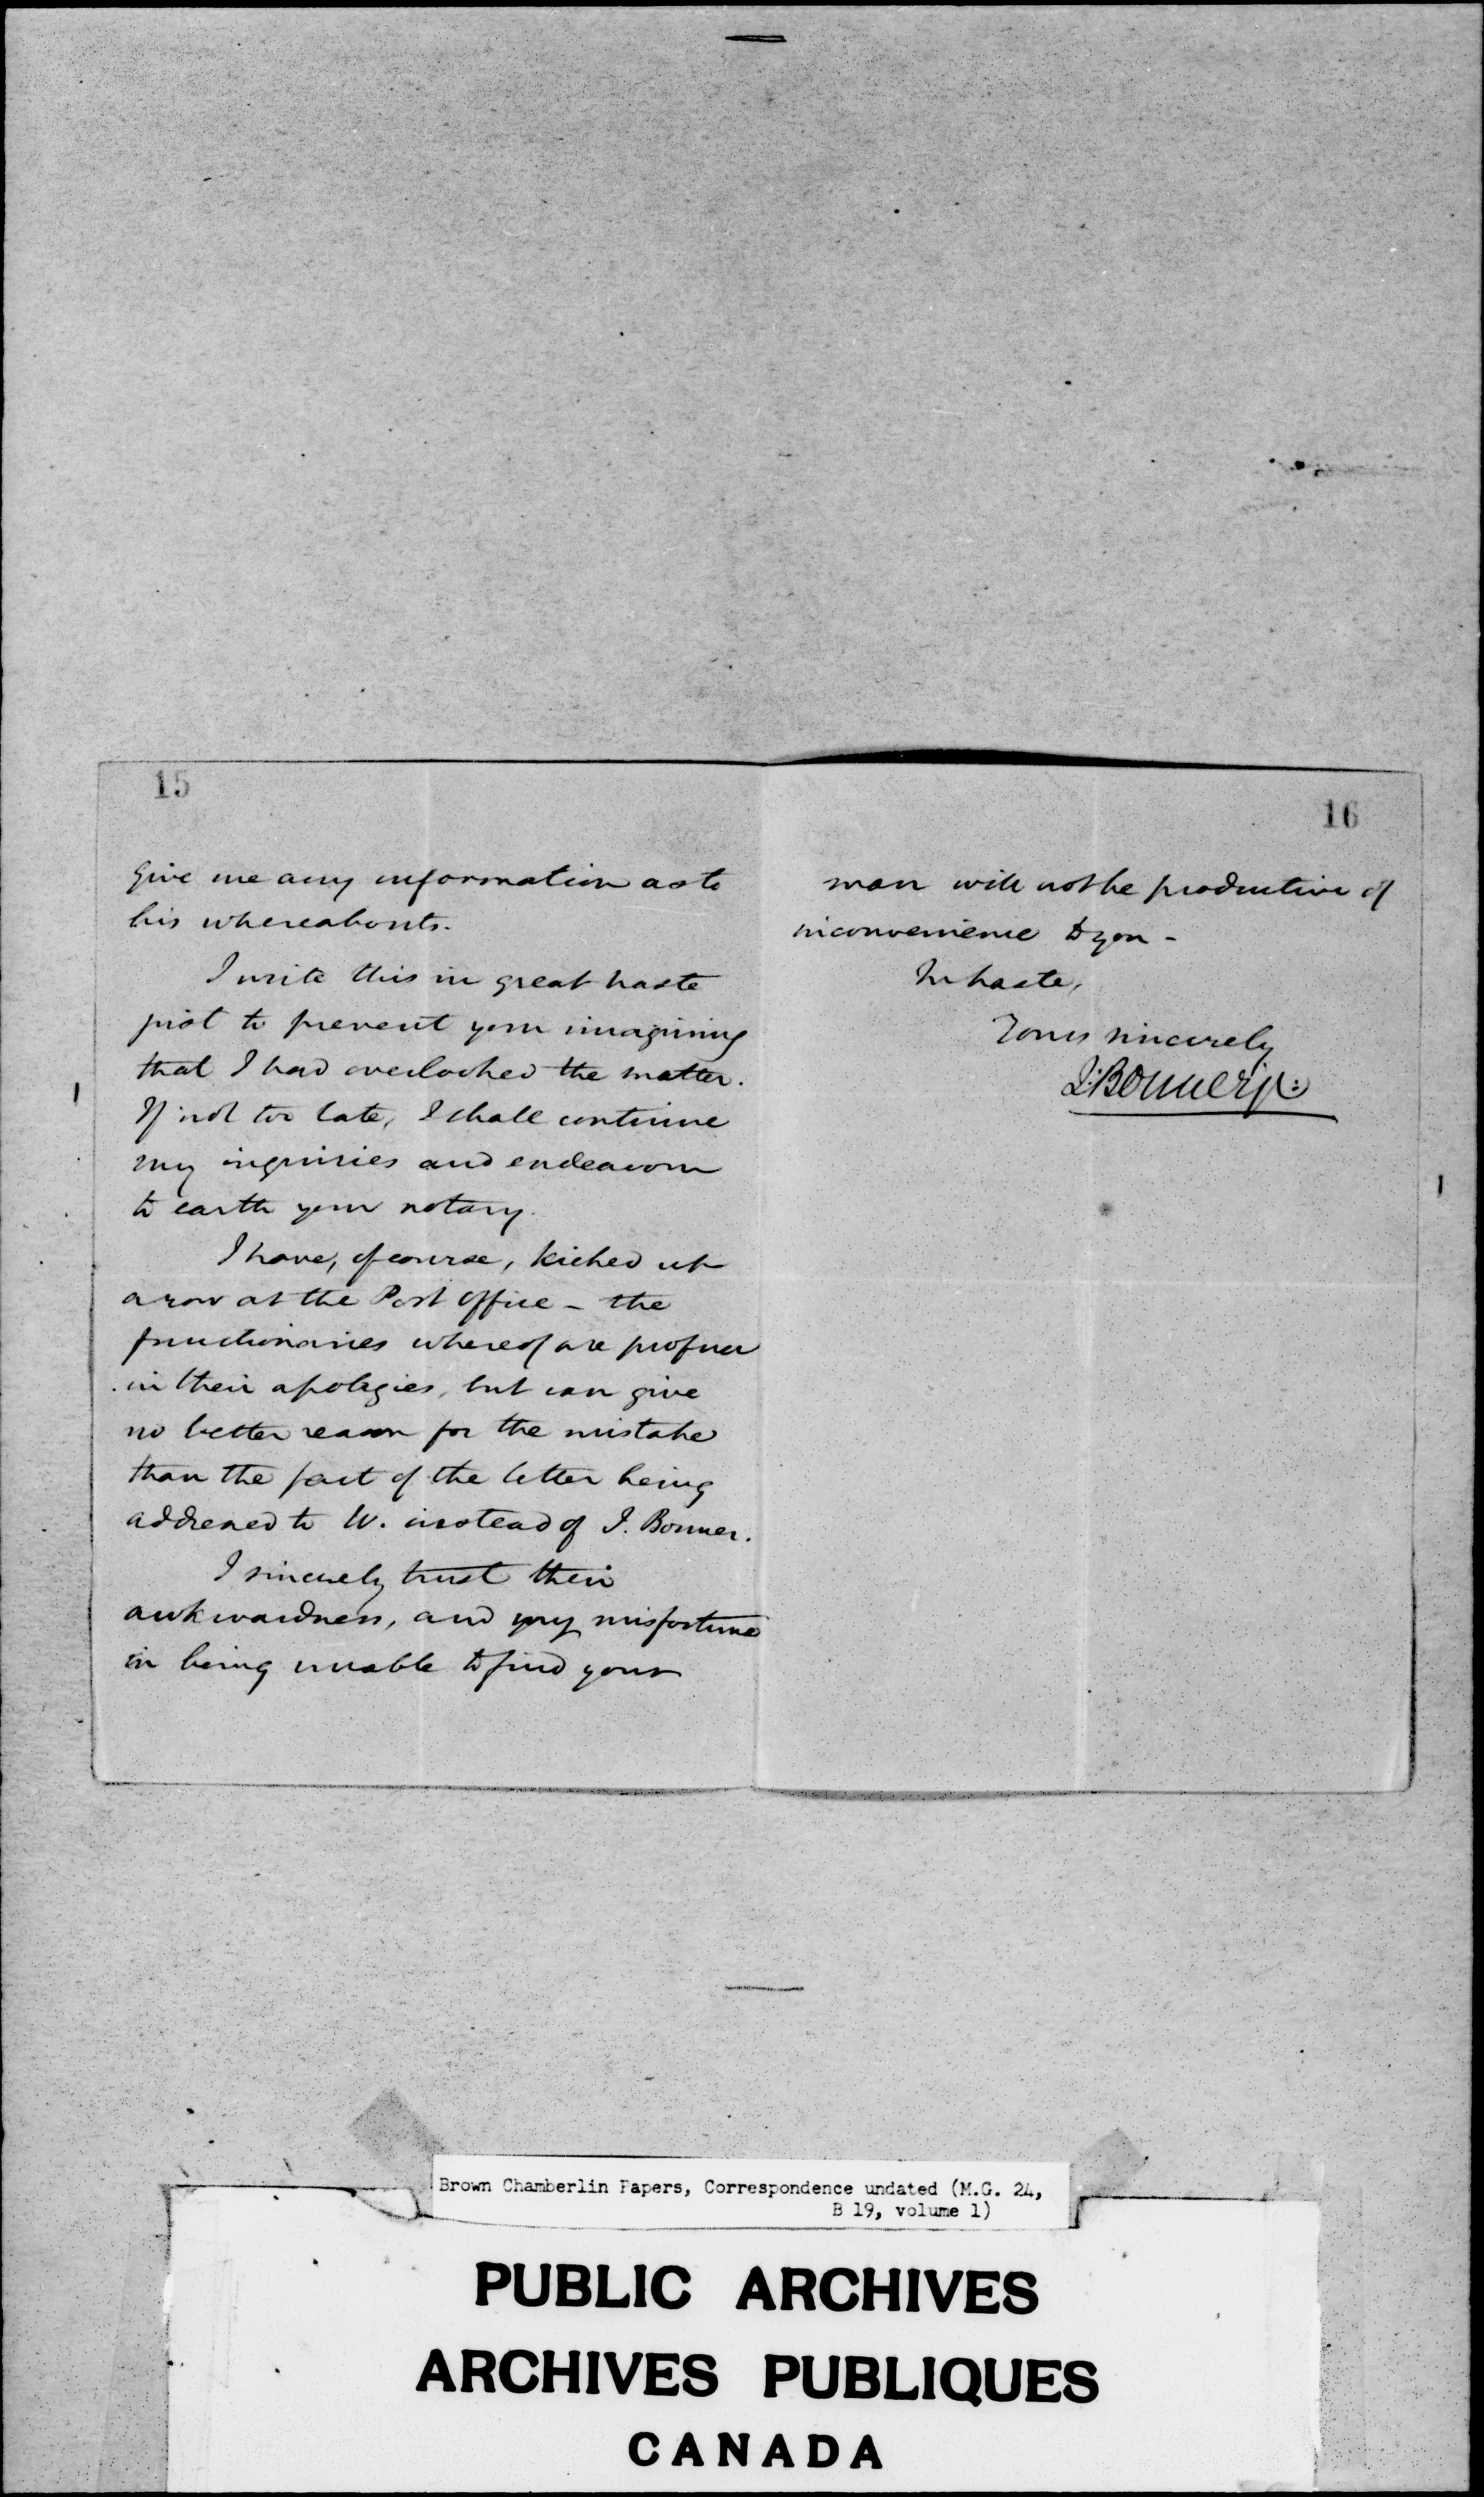 15
give me any information as to
his whereabouts.
I write this in great haste
just to prevent your imagining
that I had overlooked the matter.
If not too late, I shall continue
my inquiries and endeavour
to earth your notary.
I have, of course, kicked up
a row at the Post Office - the
functionaries whereof are profuse
in their apologies, but can give
no better reason for the mistake
than the fact of the letter being
addressed to W. instead of J. Bonner.
I sincerely trust their
awkwardness, and my misfortune
in being unable to find your
16
man will not be productive of
inconvenience to you -
In haste,
Yours sincerely
J. Bonner jr:
Brown Chamberlin Papers, Correspondence undated (M.G. 24,
B 19, volume 1)
PUBLIC ARCHIVES
ARCHIVES PUBLIQUES
CANADA